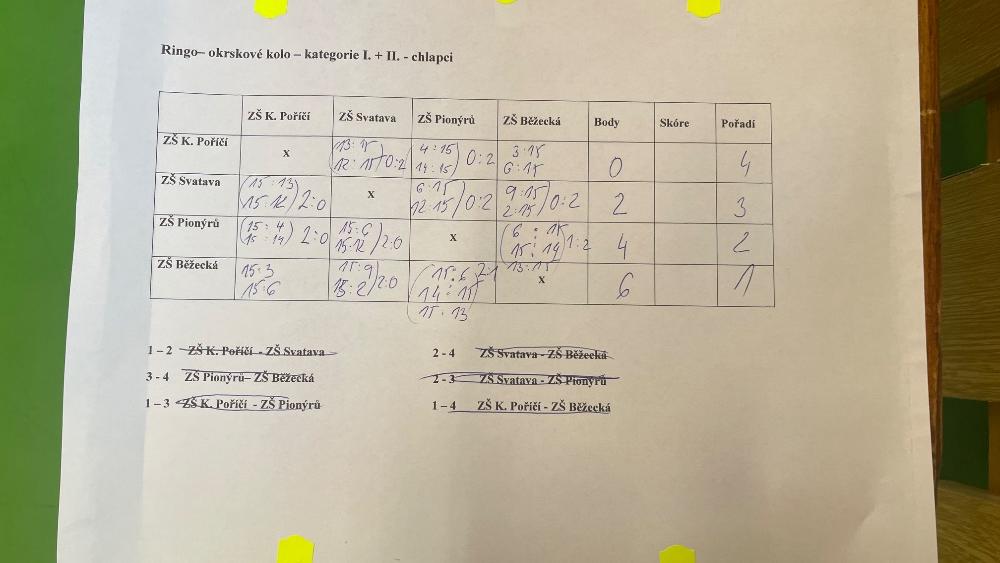 Ringo– okrskové kolo – kategorie I. + II. - chlapci
ZŠ K. Poříčí ZŠ Svatava ZŠ Pionýrů ZŠ Běžecká Body Skóre Pořadí
ZŠ K. Poříčí x 13:15 12:15 0:2 4:15 14:15 0:2 3:15 6:15 0 4
ZŠ Svatava 15:13 15:12 2:0 x 6:15 12:15 0:2 9:15 2:15 0:2 2 3
ZŠ Pionýrů 15:4 15:14 2:0 15:6 15:12 2:0 x 6:15 15:14 13:15 1:2 4 2
ZŠ Běžecká 15:3 15:6 15:9 15:2 2:0 15:6 14:15 15:13 2:1 x 6 1
1 – 2 ZŠ K. Poříčí - ZŠ Svatava
3 - 4 ZŠ Pionýrů– ZŠ Běžecká
1 – 3 ZŠ K. Poříčí - ZŠ Pionýrů
2 - 4 ZŠ Svatava - ZŠ Běžecká
2 - 3 ZŠ Svatava - ZŠ Pionýrů
1 – 4 ZŠ K. Poříčí - ZŠ Běžecká